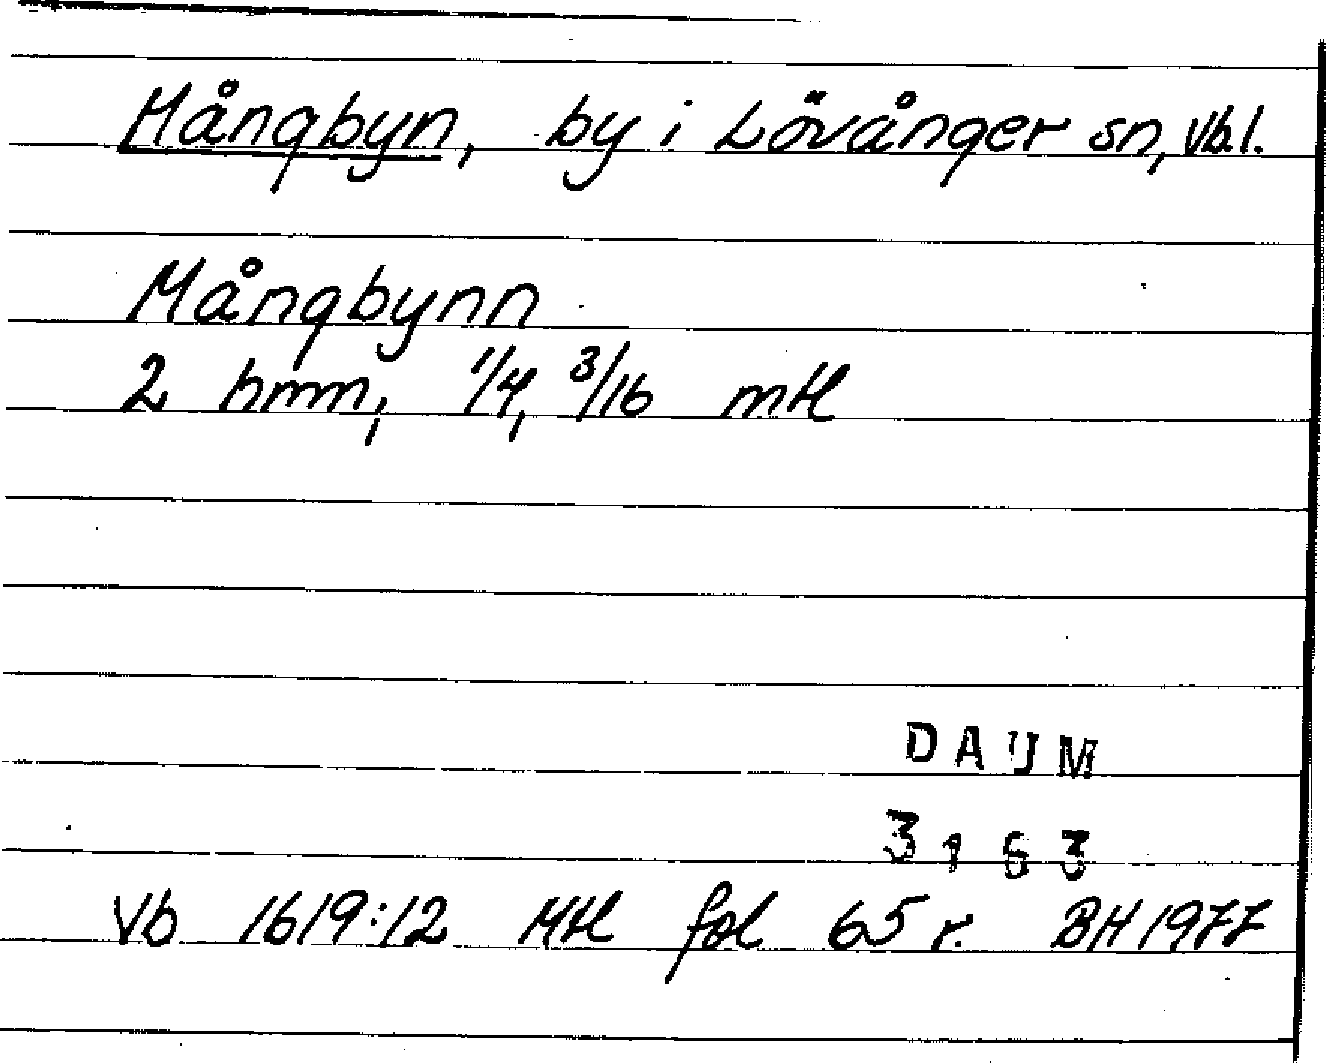 Mångbyn, by i Lövånger sn, Vb.l.
Mångbynn
2 hmm, 1/4, 3/16 mtl
DAUM
3163
Vb 1619:12 Mtl fol 65 r. BH 1977